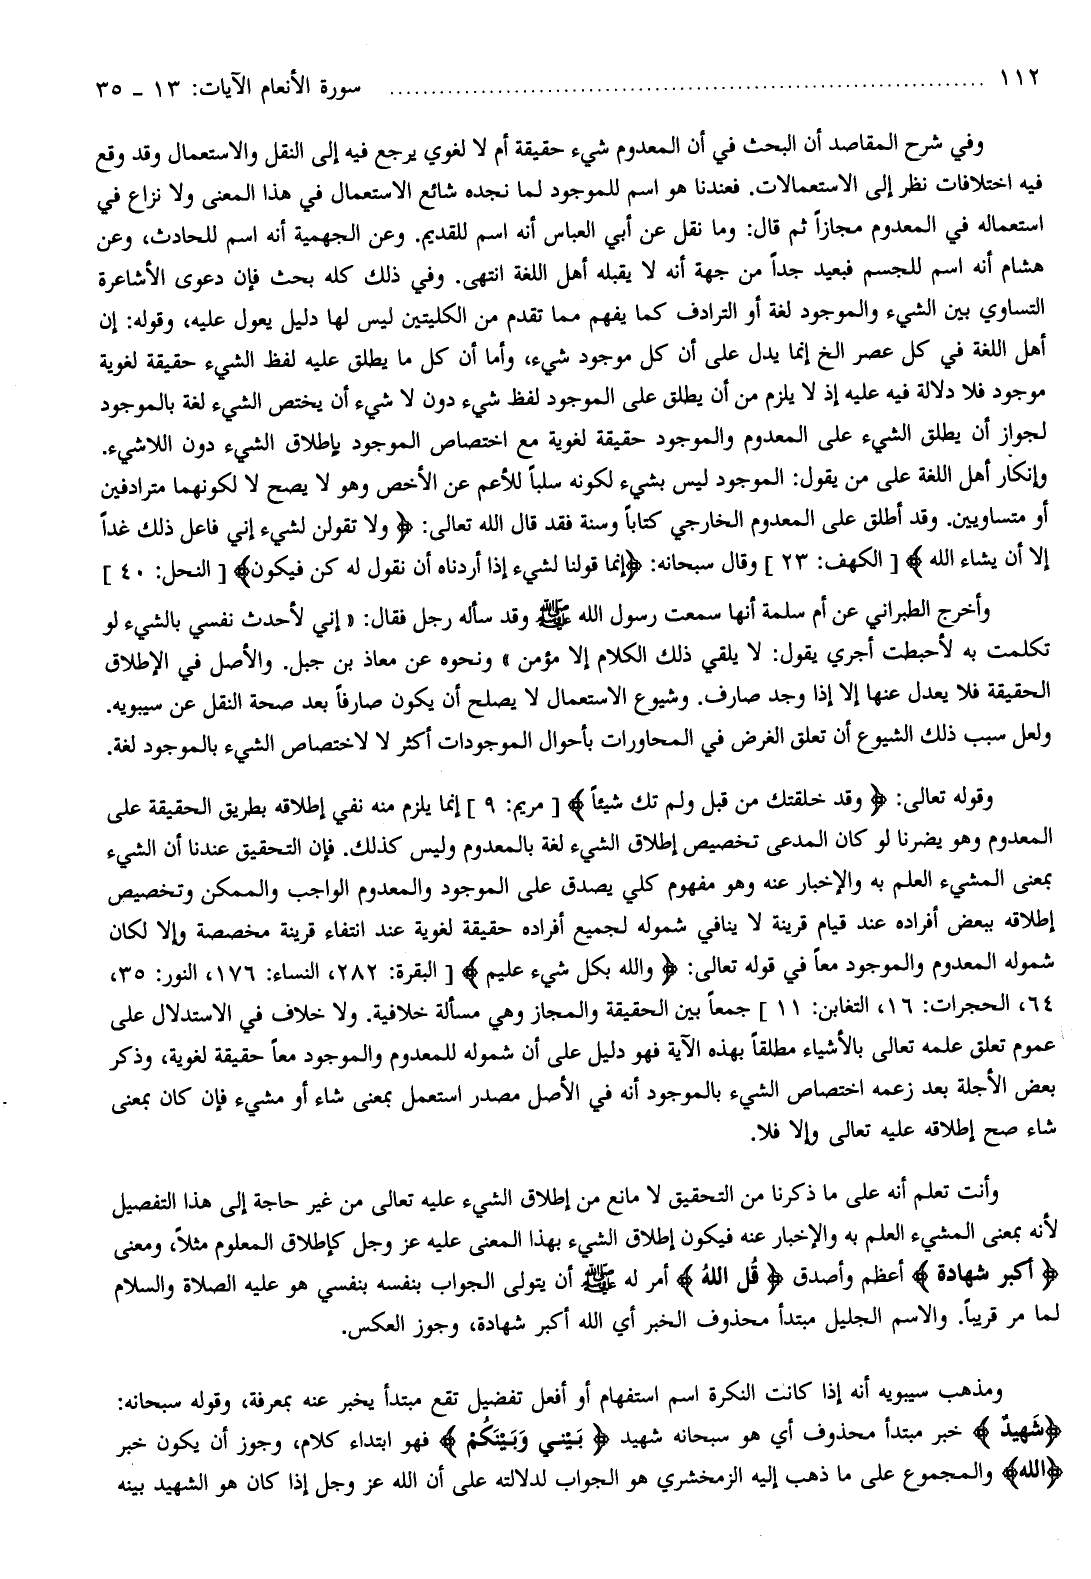 ١١٢ ........................................................ سورة الأنعام الآيات: ١٣ ـ ٣٥
وفي شرح المقاصد أن البحث في أن المعدوم شيء حقيقة أم لا لغوي يرجع فيه إلى النقل والاستعمال وقد وقع
فيه اختلافات نظر إلى الاستعمالات. فعندنا هو اسم للموجود لما نجده شائع الاستعمال في هذا المعنى ولا نزاع في
استعماله في المعدوم مجازاً ثم قال: وما نقل عن أبي العباس أنه اسم للقديم. وعن الجهمية أنه اسم للحادث، وعن
هشام أنه اسم للجسم فبعيد جداً من جهة أنه لا يقبله أهل اللغة انتهى. وفي ذلك كله بحث فإن دعوى الأشاعرة
التساوي بين الشيء والموجود لغة أو الترادف كما يفهم مما تقدم من الكليتين ليس لها دليل يعول عليه، وقوله: إن
أهل اللغة في كل عصر الخ إنما يدل على أن كل موجود شيء، وأما أن كل ما يطلق عليه لفظ الشيء حقيقة لغوية
موجود فلا دلالة فيه عليه إذ لا يلزم من أن يطلق على الموجود لفظ شيء دون لا شيء أن يختص الشيء لغة بالموجود
لجواز أن يطلق الشيء على المعدوم والموجود حقيقة لغوية مع اختصاص الموجود بإطلاق الشيء دون اللاشيء.
وإنكار أهل اللغة على من يقول: الموجود ليس بشيء لكونه سلباً للأعم عن الأخص وهو لا يصح لا لكونهما مترادفين
أو متساويين. وقد أطلق على المعدوم الخارجي كتاباً وسنة فقد قال الله تعالى: ﴿ ولا تقولن لشيء إني فاعل ذلك غداً
إلا أن يشاء الله ﴾ [ الكهف: ٢٣ ] وقال سبحانه: ﴿إنما قولنا لشيء إذا أردناه أن نقول له كن فيكون﴾ [ النحل: ٤٠ ]
وأخرج الطبراني عن أم سلمة أنها سمعت رسول الله ﷺ وقد سأله رجل فقال: « إني لأحدث نفسي بالشيء لو
تكلمت به لأحبطت أجري يقول: لا يلقي ذلك الكلام إلا مؤمن » ونحوه عن معاذ بن جبل. والأصل في الإطلاق
الحقيقة فلا يعدل عنها إلا إذا وجد صارف. وشيوع الاستعمال لا يصلح أن يكون صارفاً بعد صحة النقل عن سيبويه.
ولعل سبب ذلك الشيوع أن تعلق الغرض في المحاورات بأحوال الموجودات أكثر لا لاختصاص الشيء بالموجود لغة.
وقوله تعالى: ﴿ وقد خلقتك من قبل ولم تك شيئاً ﴾ [ مريم: ٩ ] إنما يلزم منه نفي إطلاقه بطريق الحقيقة على
المعدوم وهو يضرنا لو كان المدعى تخصيص إطلاق الشيء لغة بالمعدوم وليس كذلك. فإن التحقيق عندنا أن الشيء
بمعنى المشيء العلم به والإخبار عنه وهو مفهوم كلي يصدق على الموجود والمعدوم الواجب والممكن وتخصيص
إطلاقه ببعض أفراده عند قيام قرينة لا ينافي شموله لجميع أفراده حقيقة لغوية عند انتفاء قرينة مخصصة وإلا لكان
شموله المعدوم والموجود معاً في قوله تعالى: ﴿ والله بكل شيء عليم ﴾ [ البقرة: ٢٨٢، النساء: ١٧٦، النور: ٣٥،
٦٤، الحجرات: ١٦، التغابن: ١١ ] جمعاً بين الحقيقة والمجاز وهي مسألة خلافية. ولا خلاف في الاستدلال على
عموم تعلق علمه تعالى بالأشياء مطلقاً بهذه الآية فهو دليل على أن شموله للمعدوم والموجود معاً حقيقة لغوية، وذكر
بعض الأجلة بعد زعمه اختصاص الشيء بالموجود أنه في الأصل مصدر استعمل بمعنى شاء أو مشيء فإن كان بمعنى
شاء صح إطلاقه عليه تعالى وإلا فلا.
وأنت تعلم أنه على ما ذكرنا من التحقيق لا مانع من إطلاق الشيء عليه تعالى من غير حاجة إلى هذا التفصيل
لأنه بمعنى المشيء العلم به والإخبار عنه فيكون إطلاق الشيء بهذا المعنى عليه عز وجل كإطلاق المعلوم مثلاً، ومعنى
﴿ أكبر شهادة ﴾ أعظم وأصدق ﴿ قُل اللهُ ﴾ أمر له ﷺ أن يتولى الجواب بنفسه بنفسي هو عليه الصلاة والسلام
لما مر قريباً. والاسم الجليل مبتدأ محذوف الخبر أي الله أكبر شهادة، وجوز العكس.
ومذهب سيبويه أنه إذا كانت النكرة اسم استفهام أو أفعل تفضيل تقع مبتدأ يخبر عنه بمعرفة، وقوله سبحانه:
﴿شَهِيدٌ ﴾ خبر مبتدأ محذوف أي هو سبحانه شهيد ﴿ بَيْنـي وَبَيْنَكُمْ ﴾ فهو ابتداء كلام، وجوز أن يكون خبر
﴿الله﴾ والمجموع على ما ذهب إليه الزمخشري هو الجواب لدلالته على أن الله عز وجل إذا كان هو الشهيد بينه